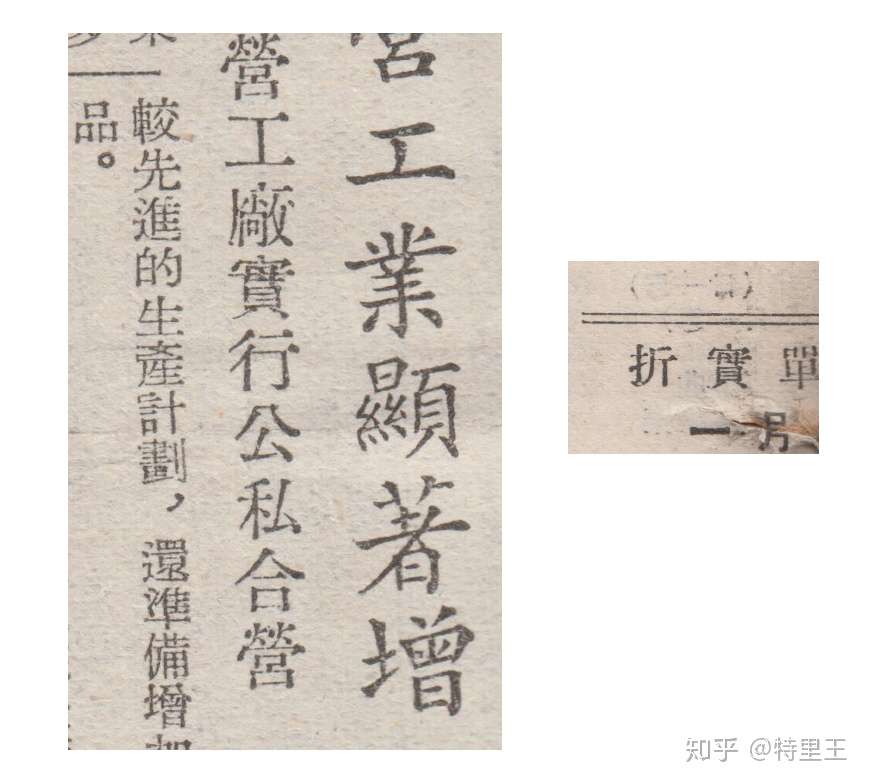 營工業顯著增
營工廠實行公私合營
較先進的生產計劃，還準備增加
品。
折實單
一月
知乎 @特里王